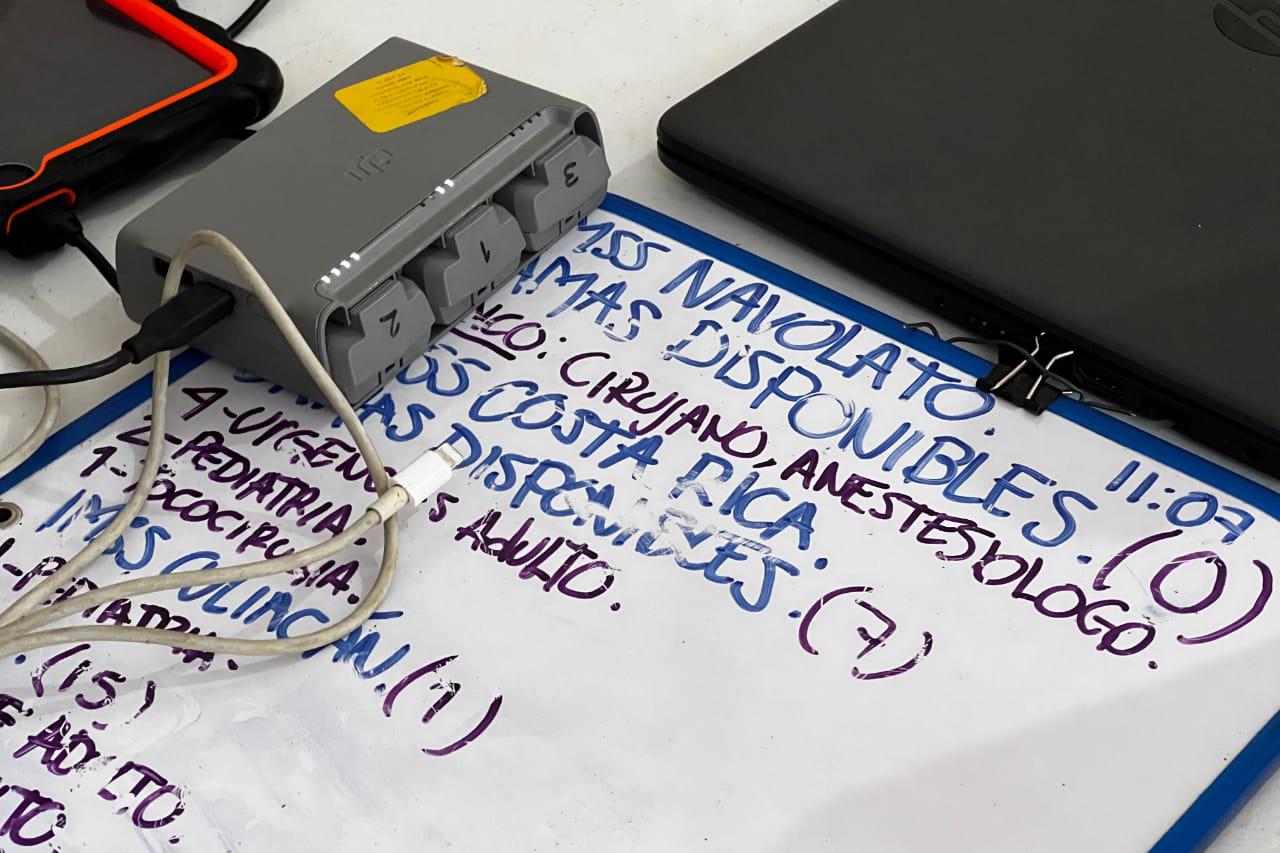 dji
3
1
2
MSS NAVOLATO. 11:07
AMAS DISPONIBLES. (0)
CO: CIRUJANO, ANESTESIOLOGO.
SS COSTA RICA.
AS DISPONIBLES. (7)
4-URGENC S ADULTO.
2-PEDIATRIA
1-TOCOCIRUGIA.
IMSS CULIACÁN. (1)
-PEDIATRIA.
. (15)
E ADULTO.
LTO.